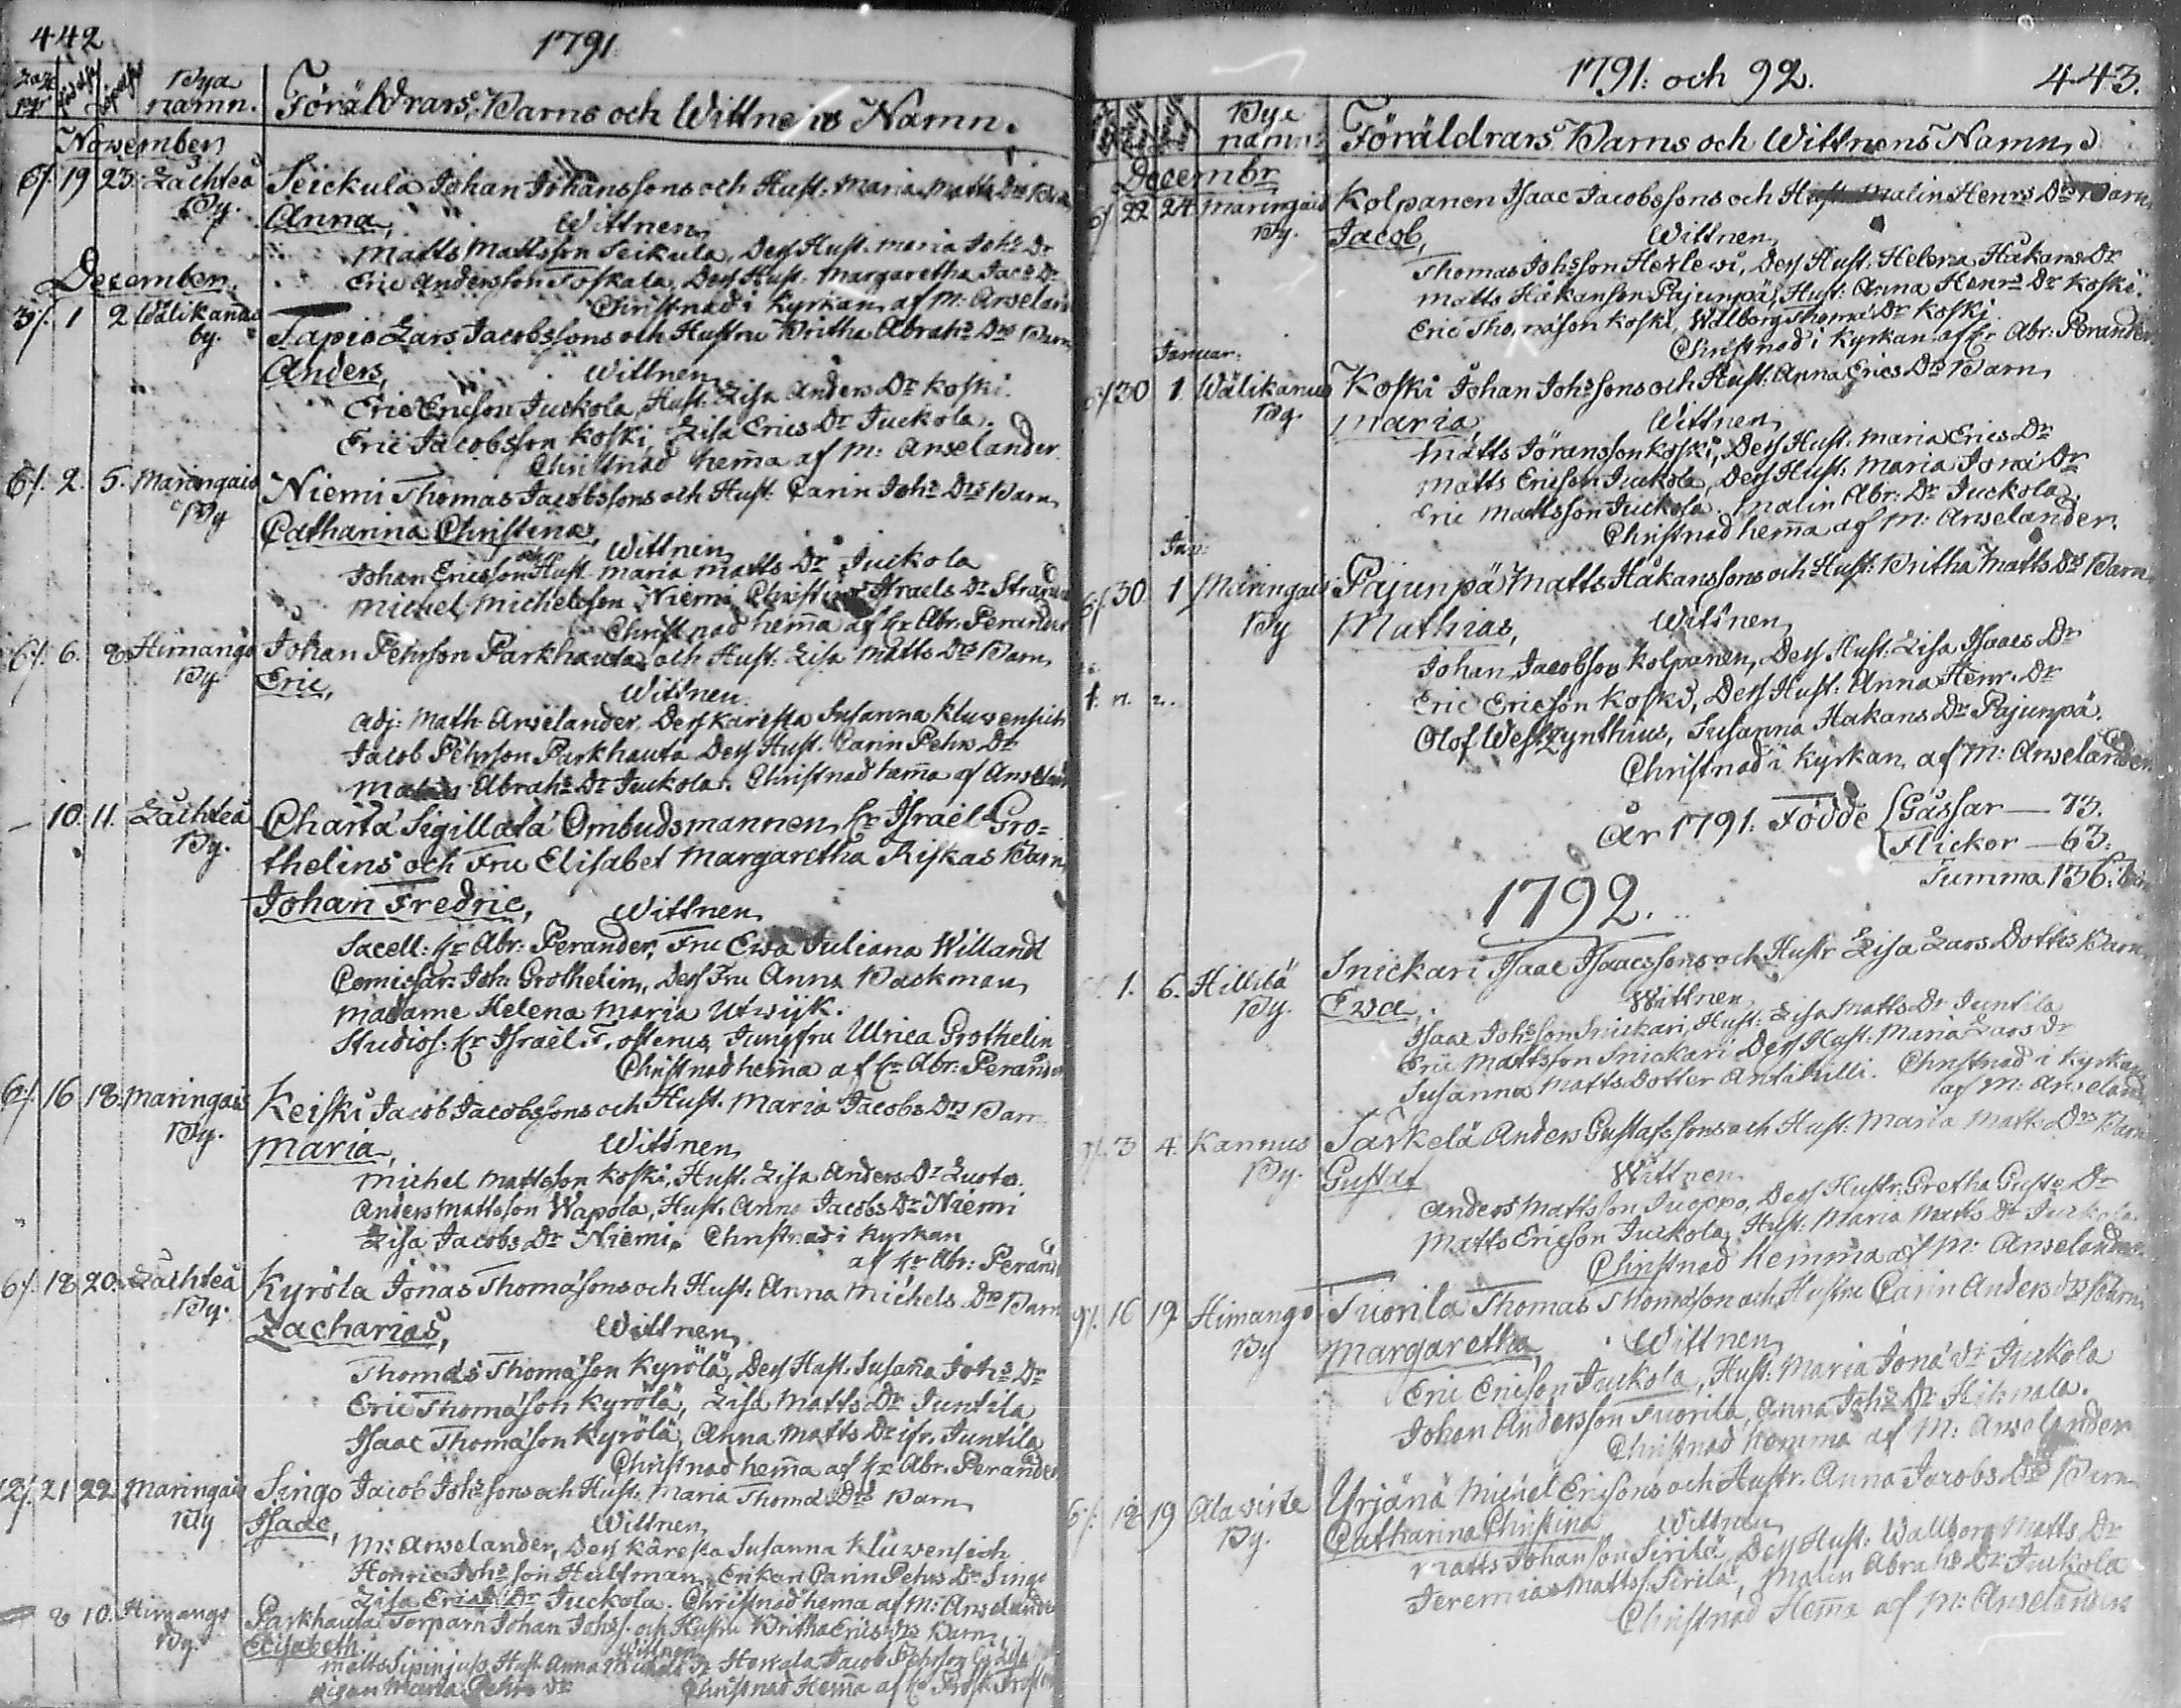 442
1791.
Bya namn.
Föräldrars, Barns och Wittnens Namn.
November
6/. 19 23. Låchteå Seickula Johan Johanssons och Hust. Maria Matts Drs Barn
By. Anna, Wittnen
Matts Mattsson Seikula, Dess Hust. Maria Johs Dr
Eric Andersson Toskala, Dess Hust. Margaretha Jacs Dr
Christnad i Kyrkan af M: Anselan
December
3/. 1 2 Wälikanus Tapio Lars Jacobssons och Hustru Britha Abrahs Drs Barn
by. Anders, Wittnen
Eric Ericson Juckola, Hust: Lisa Anders Dr Koski.
Eric Jacobsson Koski, Lisa Erics Dr Juckola.
Christnad hema af M: Anselander
6/. 2. 5. Maringais Niemi Thomas Jacobssons och Hust: Carin Johs Drs Barn
By Catharina Christina, Wittnen
Johan Ericsson och Hust. Maria Matts Dr Juckola
Michel Michelsson Niemi, Christina Israels Dr
Christnad hema af Hr Abr. Perander
6/. 6. 8. Himango Johan Pehrson Parkhauta och Hust: Lisa Matts Drs Barn
By Eric, Wittnen
Adj: Math: Anselander, Dess Käresta Susanna Kluwensich
Jacob Pehrson Parkhauta Dess Hust. Carin Pehrs Dr
Malin Abrahs Dr Juckola. Christnad hema af Anselan
10. 11. Låchteå Charta Sigillata Ombudsmannen, Hr Israël Gro=
By. thelins och Fru Elisabet Margaretha Riskas Barn
Johan Fredric, Wittnen
Sacell: Hr Abr: Perander, Fru Ewa Juliana Willandt
Comissar: Joh: Grothelin, Dess Fru Anna Backman
Madame Helena Maria Utwijk.
Studios: Hr Israël F. osterus, Jungfru Ulrica Grothelin
Christnad hema af Hr Abr: Perander
6/. 16 18. Maringais Keiski Jacob Jacobssons och Hust. Maria Jacobs Drs Barn
By. Maria, Wittnen
Michel Mattsson Koski, Hust. Lisa Anders Dr Luoto.
Anders Mattsson Wapola, Hust. Anna Jacobs Dr Niemi
Lisa Jacobs Dr Niemi. Christnad i Kyrkan
af Hr Abr: Perand
6/. 18 20. Låchteå Kyrölä Jonas Thomasons och Hust: Anna Michels Drs Barn
By. Zacharias, Wittnen
Thomas Thomason Kyrölä, Dess Hust. Susana Johs Dr
Eric Thomason Kyrölä, Lisa Matts Dr Juntila
Isaac Thomason Kyrölä, Anna Matts Dr ifr. Juntila
Christnad hema af Hr Abr. Perander
12/. 21 22 Maringais Singo Jacob Johssons och Hust. Maria Thoma Drs Barn
By Isaac, Wittnen
M: Anselander, Dess Käresta Susanna Kluwensich
Henric Johsson Hultman, Enkan Carin Pehrs Dr Singo
Lisa Erics Dr Juckola. Christnad hema af M: Anselander
8 10. Himango Parkhauta Torparn Johan Johss. och Hustru Britha Erics Drs Barn
By. Elisabeth. Wittnen
Matts Hust. Anna Michels Dr Jacob Pehrson Lisa
Pigan Maria Pehrs Dr Christnad Hema af Hr
1791: och 92. 443.
Bya namn.
Föräldrars Barns och Wittnens Namn
Decembr
6/ 22 24 Maringais Kolpanen Isaac Jacobssons och Hust Malin Henrs Drs Barn
By. Jacob, Wittnen
Thomas Johsson Herlewi, Dess Hust: Helena Håkans Dr
Matts Håkanson Pajunpä, Hust: Anna Henrs Dr Koski.
Eric Thomason Koski, Walborg Thoma Dr Koski
Christnad i Kyrkan af Hr Abr: Perander
Januar:
30 1. Wälikanus Koski Johan Johssons och Hust: Anna Erics Drs Barn
By. Maria, Wittnen
Matts Jöransson Koski, Dess Hust: Maria Erics Dr
Matts Ericson Juckola, Dess Hust: Maria Jona Dr
Eric Mattsson Juckola. Malin Abr: Dr Juckola.
Christnad hema af M: Anselander.
Jan:
6/. 30 1 Maringais Pajunpä Matts Håkanssons och Hust: Britha Matts Drs Barn
By Mathias, Wittnen
Johan Jacobson Kolpanen, Dess Hust: Lisa Isaacs Dr
Eric Ericson Koski, Dess Hust: Anna Henr. Dr
Olof Westzynthius, Susanna Hakans Dr Pajunpä.
Christnad i Kyrkan, af M: Anselander
År 1791. Födde Gåssar — 73.
Flickor — 63.
Summa 136.
1792.
1. 6. Hillilä Snickari Isaac Isaacssons och Hustr Lisa Lars Dotters Barn
By. Ewa, Wittnen
Isaac Johsson Snickari, Hust: Lisa Matts Dr Juntila
Eric Mattsson Snickari Dess Hust. Maria Lars Dr
Susanna Matts Dotter Antikulli. Christnad i Kyrkan
af M: Anseland
3 4. Kannus Särkelä Anders Gustafssons och Hust: Maria Matts Drs Barn
By. Gustaf Wittnen
Anders Mattsson Juoppo, Dess Hustr: Gretha Gusts Dr
Matts Ericson Juckola, Hust. Maria Matts Dr Juckola
Christnad hemma af M: Anselander.
9/. 16 19. Himango Tuorila Thomas Thomason och Hustru Carin Anders Drs Barn
By Margaretha Wittnen
Eric Ericson Juckola, Hust: Maria Jona Dr Juckola
Johan Andersson Tuorila, Anna Johs Dr Hihnala.
Christnad hemma af M: Anselander
6/. 18 19 Alawirte Yrjänä Michel Ericsons och Hustr. Anna Jacobs Drs Barn
By. Catharina Christina Wittnen
Matts Johanson Sirilä, Dess Hust: Wallborg Matts Dr
Jeremias Mattss. Sirilä, Malin Abrahs Dr Juckola
Christnad Hema af M: Anselander